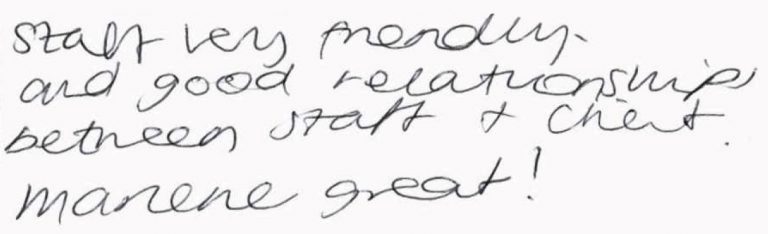 Staff very friendly.
and good relationship
between staff & client.
Marlene great!